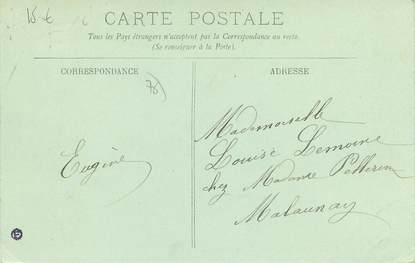 15 €
CARTE POSTALE
Tous les Pays étrangers n'acceptent pas la Correspondance au recto.
(Se renseigner à la Poste).
CORRESPONDANCE
ADRESSE
76
Eugène
Mademoiselle
Louise Lemoine
chez Madame Pellerin
Malaunay